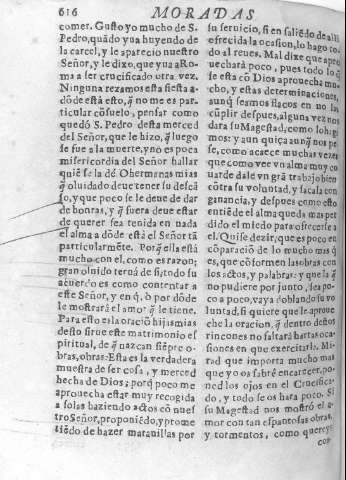 616 MORADAS
comer. Gusto yo mucho de S.
Pedro, quãdo yua huyendo de
la carcel, y le apareciо nuestro
Señor, y le dixo, que yua a Ro-
ma a ser crucificado otra vez.
Ninguna rezamos esta fiesta a-
dõde està esto, q̃ no me es par-
ticular cõsuelo, pensar como
quedó S. Pedro desta merced
del Señor, que le hizo, q̃ luego
se fue a la muerte, y no es poca
misericordia del Señor hallar
quiẽ se la dé O hermanas mias
q̃ oluidado deue tener su descã
so, y que poco se le deue de dar
de honras, y q̃ fuera deue estar
de querer sea tenida en nada
el alma a dõde està el Señor tã
particularmẽte. Porq̃ si ella està
mucho con el, como es razon;
gran oluido ternà de si, todo su
acuerdo es como contentar a
este Señor, y en q̃, ò por dõde
le mostrarà el amor q̃ le tiene.
Para esto es la oraciõ hijas mias
desto sirue este matrimonio es
piritual, de q̃ nazcan siẽpre o-
bras, obras: Esta es la verdadera
muestra de ser cosa, y merced
hecha de Dios; porq̃ poco me
aprouecha estar muy recogida
a solas haziendo actos cõ nues
tro Señor, proponiẽdo, y prome
tiẽdo de hazer marauillas por
su seruicio, si en saliẽdo de alli
ofrecida la ocasion, lo hago to-
do al reues. Mal dixe que apro
uecharà poco, pues todo lo q̃
se està cõ Dios aprouecha mu-
cho, y estas determinaciones,
aunq̃ seamos flacos en no las
cũplir despues, alguna vez nos
darà su Magestad, como lo haga
mos: y aun quiça aunq̃ nos pe-
se, como acaece muchas vezes
que como vee vn alma muy co
uarde dale vn grã trabajo bien
cõtra su voluntad, y sacala con
ganancia, y despues como esto
entiẽde el alma queda mas per
dido el miedo para ofrecerse a
el. Quise dezir, que es poco en
cõparaciõ de lo mucho mas q̃
es, que cõformen las obras con
los actos, y palabras: y que la q̃
no pudiere por junto, sea po-
co a poco, vaya doblando su vo
luntad, si quiere que le aproue-
che la oracion, q̃ dentro destos
rincones no faltarà hartas oca-
siones en que exercitarlo. Mi-
rad que importa mucho mas
que yo os sabrè encarecer, po-
ned los ojos en el Crucifica-
do, y todo se os harà poco. Si
su Magestad nos mostrò el a-
mor con tan espantosas obras,
y tormentos, como quereys
con